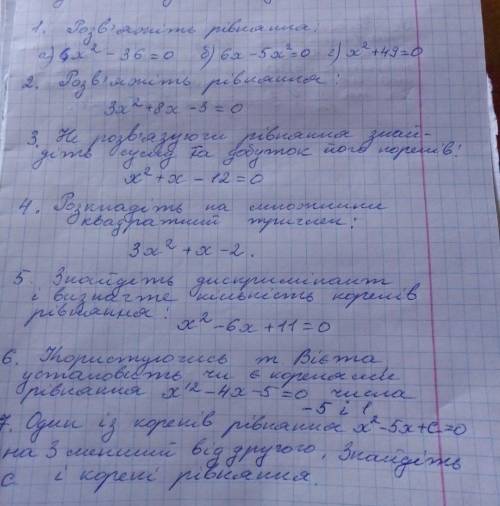 1. Розв'яжіть рівняння:
а) 4x² - 36 = 0 б) 6x - 5x² = 0 г) x² + 49 = 0
2. Розв'яжіть рівняння:
3x² + 8x - 3 = 0
3. Не розв'язуючи рівняння знай-
діть суму та добуток його коренів:
x² + x - 12 = 0
4. Розкладіть на множники
квадратний тричлен:
3x² + x - 2.
5. Знайдіть дискримінант
і визначте кількість коренів
рівняння:
x² - 6x + 11 = 0
6. Користуючись т. Вієта
установіть чи є коренями
рівняння x² - 4x - 5 = 0 числа
-5 і 1
7. Один із коренів рівняння x² - 5x + c = 0
на 3 менший від другого. Знайдіть
c і корені рівняння.